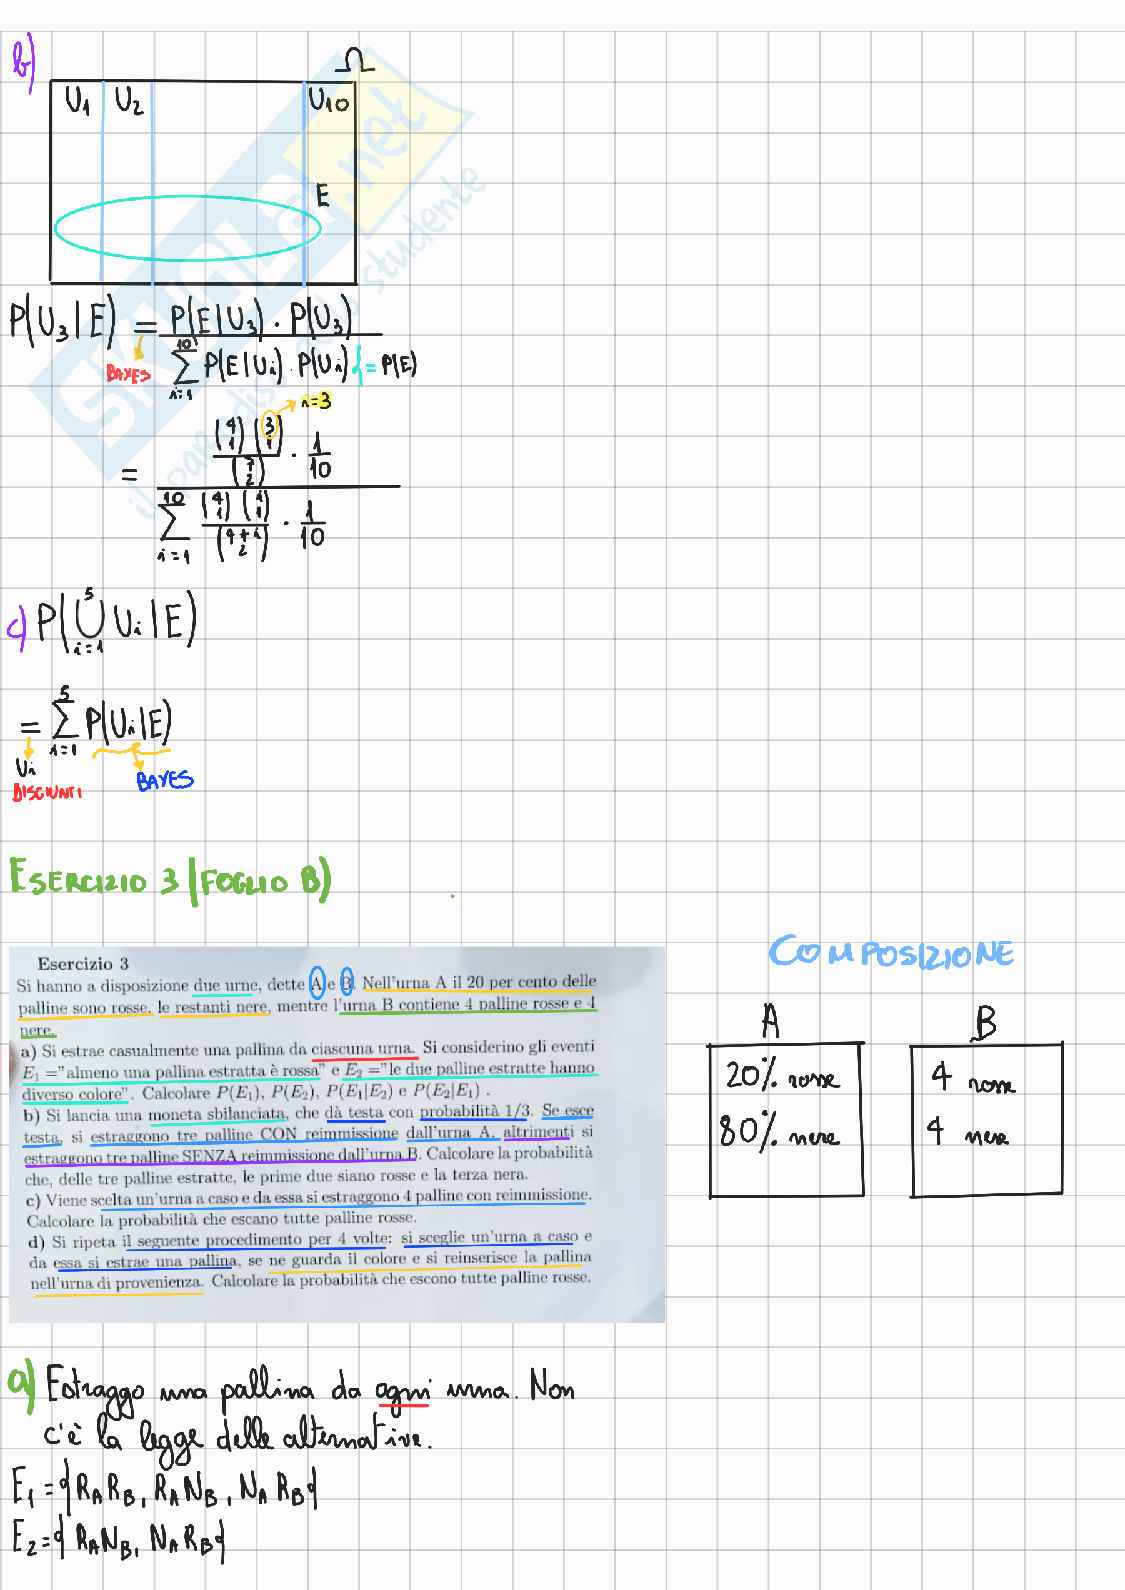 b)
Ω
U1 U2 U10
E
P(U3|E) = P(E|U3) · P(U3)
BAYES
10 Σ i=1 P(E|Ui) · P(Ui) } = P(E)
i=3
= (4 1) (3 1) / (7 2) · 1/10
10 Σ i=1 (4 1) (i 1) / (4+i 2) · 1/10
c) P(5 ∪ i=1 Ui|E)
= 5 Σ i=1 P(Ui|E)
Ui
DISGIUNTI
BAYES
SKUOLA.net
il paradiso dello studente
ESERCIZIO 3 (FOGLIO B)
Esercizio 3
Si hanno a disposizione due urne, dette A e B. Nell'urna A il 20 per cento delle
palline sono rosse, le restanti nere, mentre l'urna B contiene 4 palline rosse e 4
nere.
a) Si estrae casualmente una pallina da ciascuna urna. Si considerino gli eventi
E1 ="almeno una pallina estratta è rossa" e E2 ="le due palline estratte hanno
diverso colore". Calcolare P(E1), P(E2), P(E1|E2) e P(E2|E1) .
b) Si lancia una moneta sbilanciata, che dà testa con probabilità 1/3. Se esce
testa, si estraggono tre palline CON reimmissione dall'urna A, altrimenti si
estraggono tre palline SENZA reimmissione dall'urna B. Calcolare la probabilità
che, delle tre palline estratte, le prime due siano rosse e la terza nera.
c) Viene scelta un'urna a caso e da essa si estraggono 4 palline con reimmissione.
Calcolare la probabilità che escano tutte palline rosse.
d) Si ripeta il seguente procedimento per 4 volte: si sceglie un'urna a caso e
da essa si estrae una pallina, se ne guarda il colore e si reinserisce la pallina
nell'urna di provenienza. Calcolare la probabilità che escono tutte palline rosse.
COMPOSIZIONE
A B
20% rosse
80% nere
4 rosse
4 nere
a) Estraggo una pallina da ogni urna. Non
c'è la legge delle alternative.
E1 = {RARB, RANB, NARB}
E2 = {RANB, NARB}